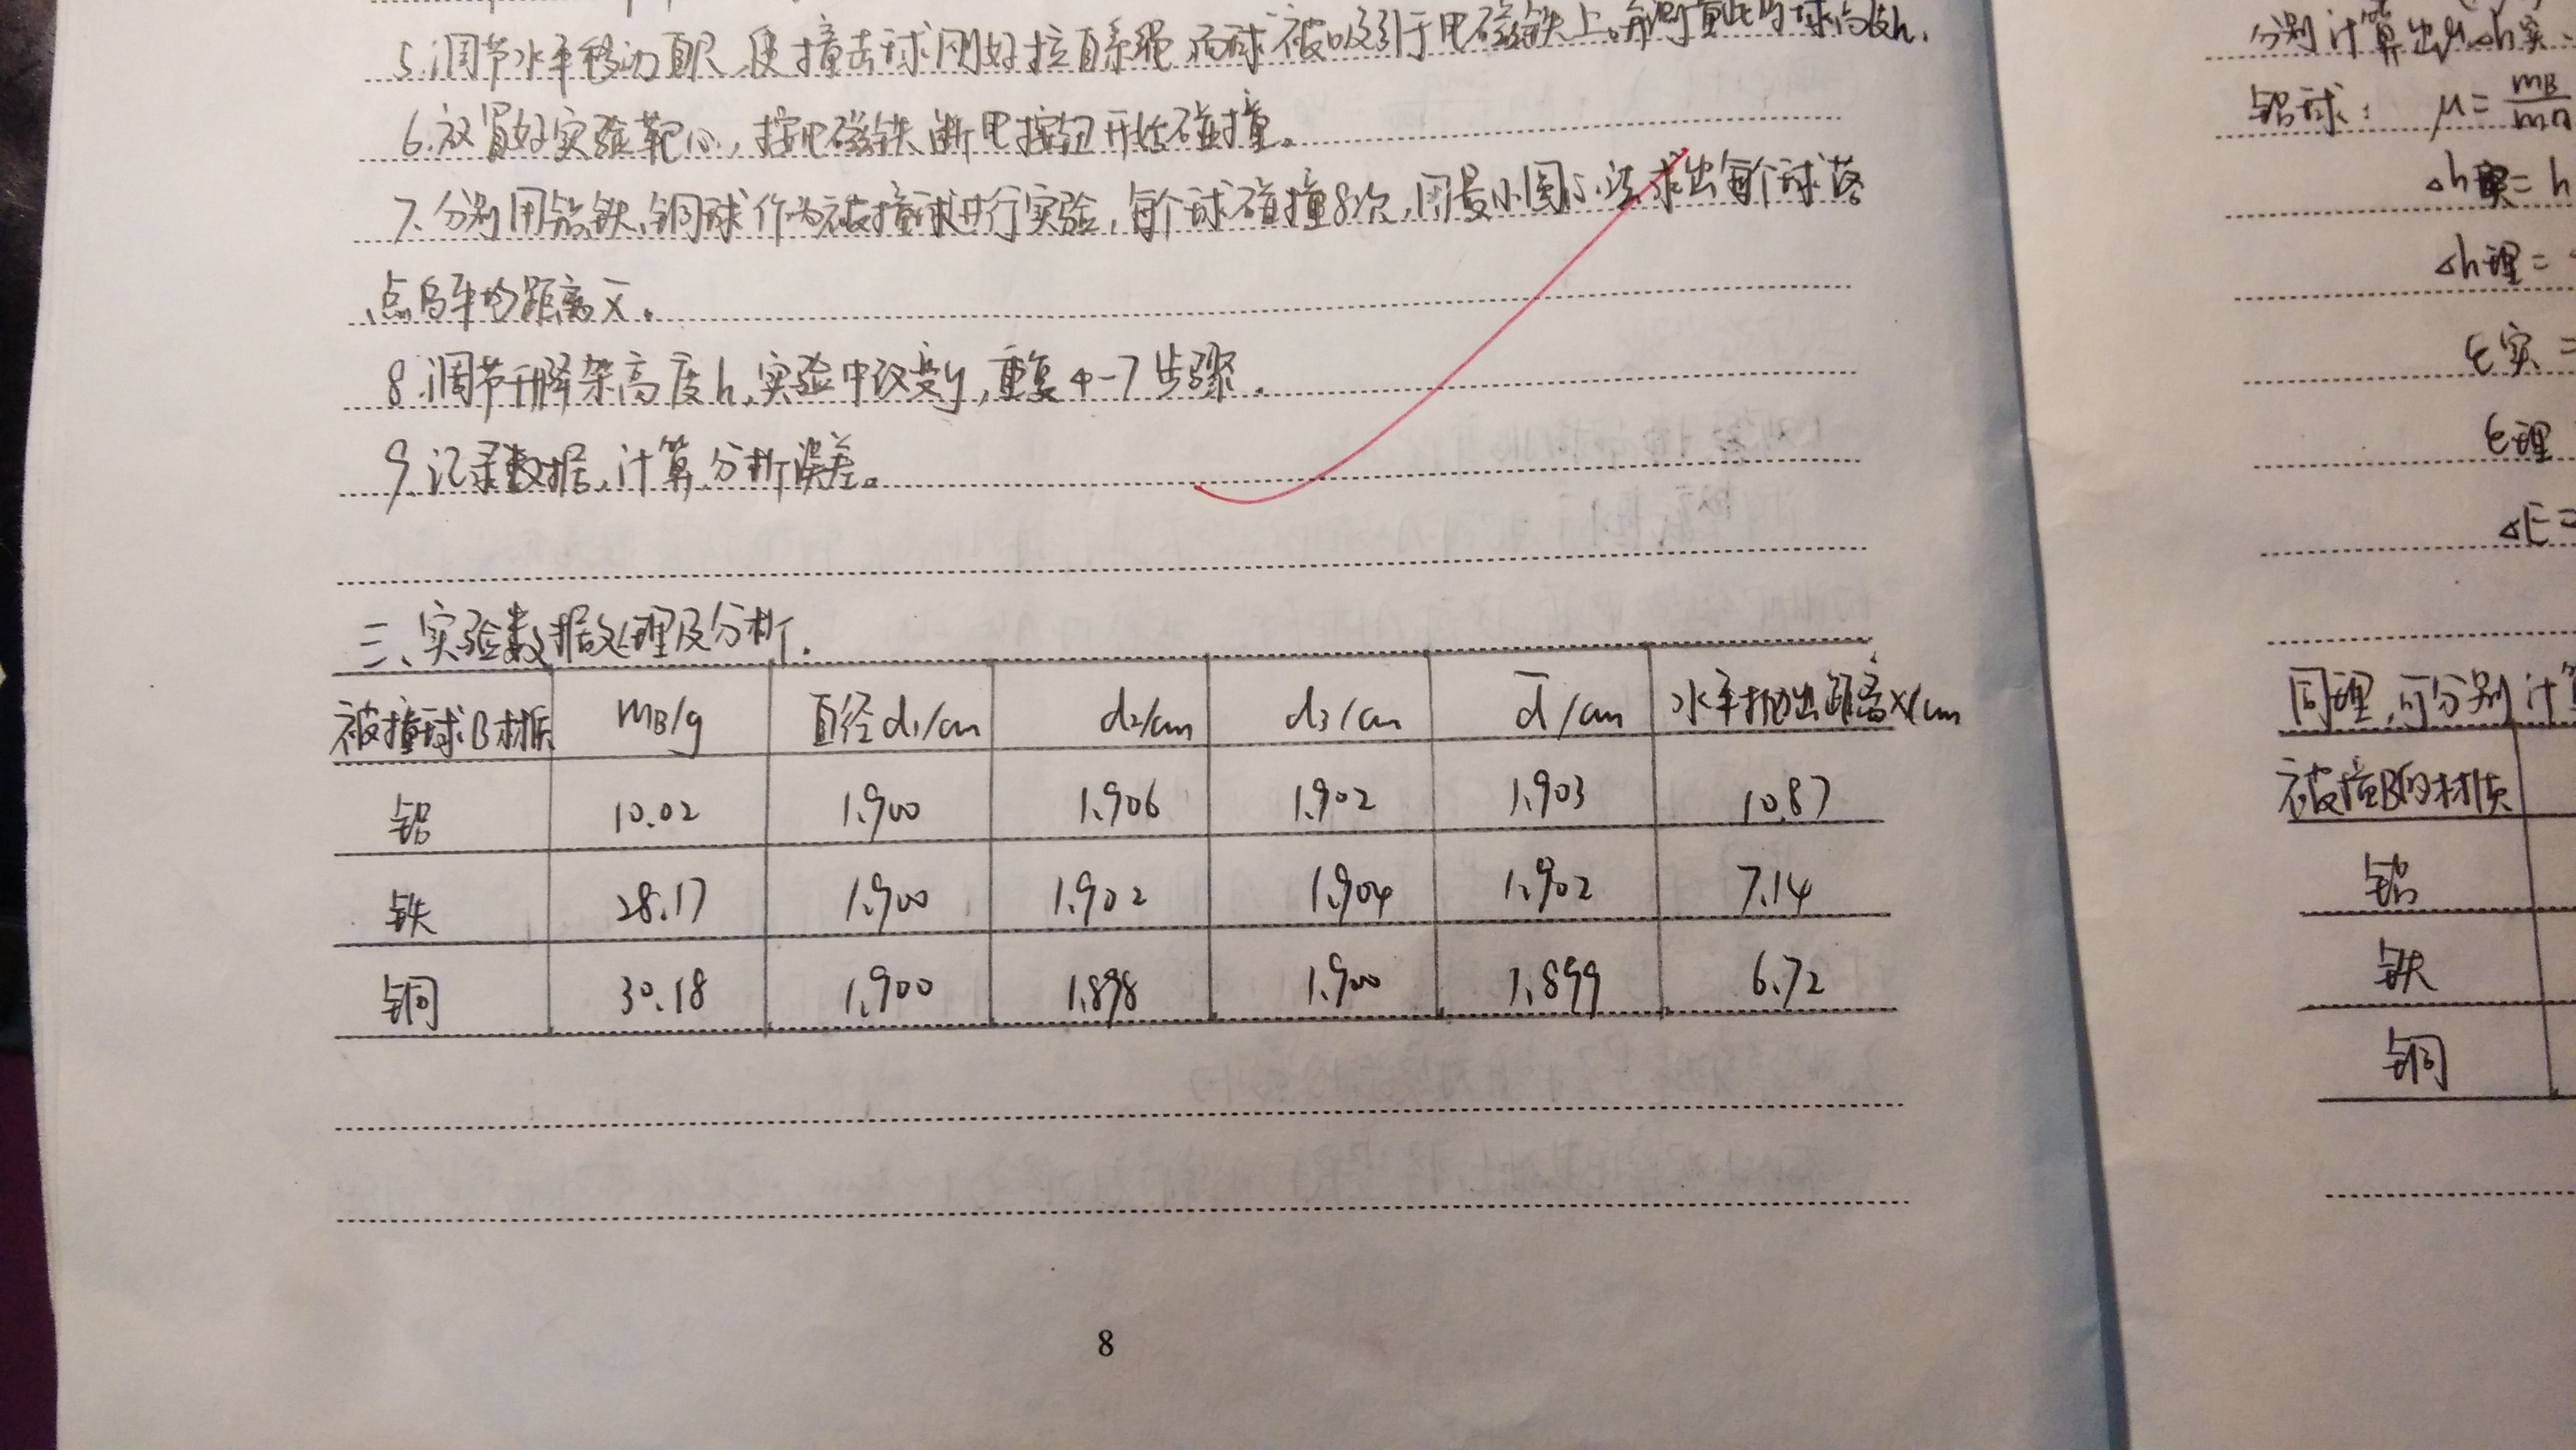 5.调节水平移动直尺,使撞击球刚好拉直系绳,而球被吸引于电磁铁上。并测量此时球高度h.
6.放置好实验靶心,按电磁铁断电按钮开始碰撞。
7.分别用铝、铁、铜球作为被撞球进行实验,每个球碰撞8次,用最小圆心法求出每个球落
点的平均距离x̄。
8.调节升降架高度h,实验中改变y,重复4-7步骤.
9.记录数据,计算分析误差。
三、实验数据处理及分析.
被撞球B材质 mB/g 直径d₁/cm d₂/cm d₃/cm d̄/cm 水平抛出距离x/cm
铝 10.02 1.900 1.906 1.902 1.903 10.87
铁 28.17 1.900 1.902 1.904 1.902 7.14
铜 30.18 1.900 1.898 1.900 1.899 6.72
8
分别计算出μ、Δh实、
铝球: μ=mB/m
Δh实=h
Δh理=
E实=
E理
ΔE=
同理,可分别计算
被撞B的材质
铝
铁
铜